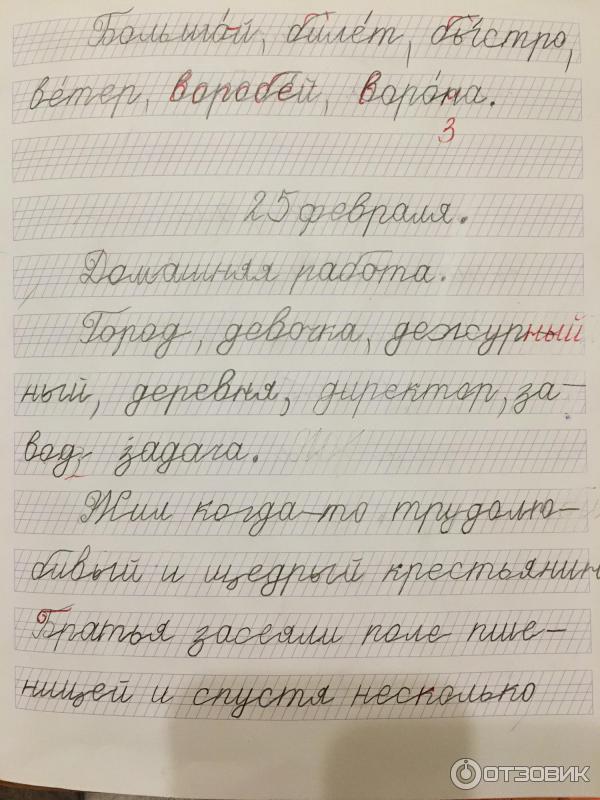 Большо́й, биле́т, бы́стро,
ве́тер, воробе́й, воро́на.
3
25 февраля.
Домашняя работа.
Город, девочка, дежурный
ный, деревня, директор, за-
вод, задача.
Жил когда-то трудолю-
бивый и щедрый крестьянин
Братья засеяли поле пше-
ницей и спустя несколько
ОТЗОВИК